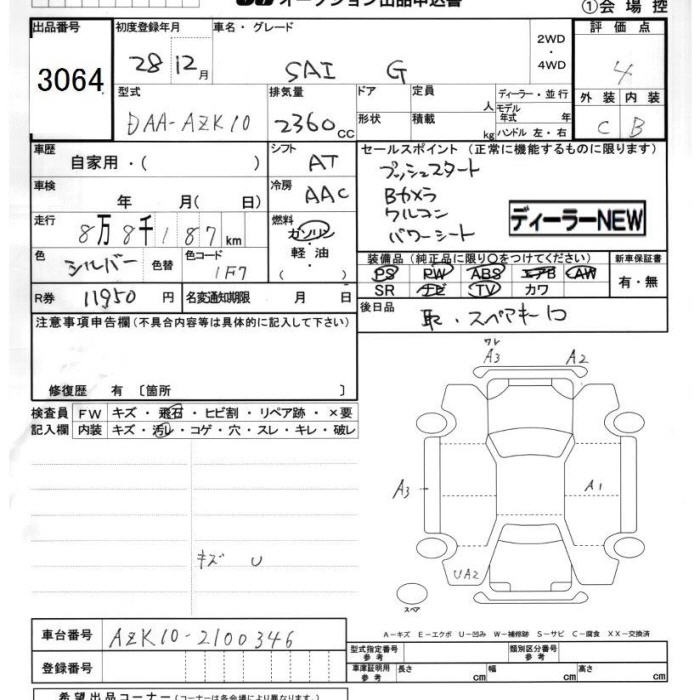 オークション出品申込書
①会場控
出品番号
3064
初度登録年月
28 12月
車名・グレード
SAI G
2WD
・
4WD
評価点
4
外装 内装
C B
型式
DAA-AZK10
排気量
2360cc
ドア
形状
定員
人
積載
kg
ディーラー・並行
モデル年式 年
ハンドル 左・右
車歴
自家用・( )
シフト
AT
セールスポイント (正常に機能するものに限ります)
プッシュスタート
Bカメラ
クルコン
パワーシート
ディーラーNEW
車検
年 月( 日)
冷房
AAC
走行
8万8千187km
燃料
ガソリン
・
軽油
( )
色
シルバー
色替
色コード
1F7
装備品 (純正品に限り○をつけてください)
新車保証書
PS PW ABS エアB AW
SR ナビ TV カワ
有・無
R券 11950円
名変通知期限 月 日
後日品
取・スペアキー1コ
注意事項申告欄(不具合内容等は具体的に記入して下さい)
修復歴 有〔箇所 〕
検査員
記入欄
FW キズ・飛石・ヒビ割・リペア跡・×要
内装 キズ・汚レ・コゲ・穴・スレ・キレ・破レ
キズ U
ワレ
A3 A2
A3 A1
UA2
スペア
A-キズ E-エクボ U-凹み W-補修跡 S-サビ C-腐食 XX-交換済
車台番号 AZK10-2100346
登録番号
型式指定番号
参考
類別区分番号
参考
車庫証明用
参考
長さ cm
幅 cm
高さ cm
希望出品コーナー(コーナーは各会場により異なります。)